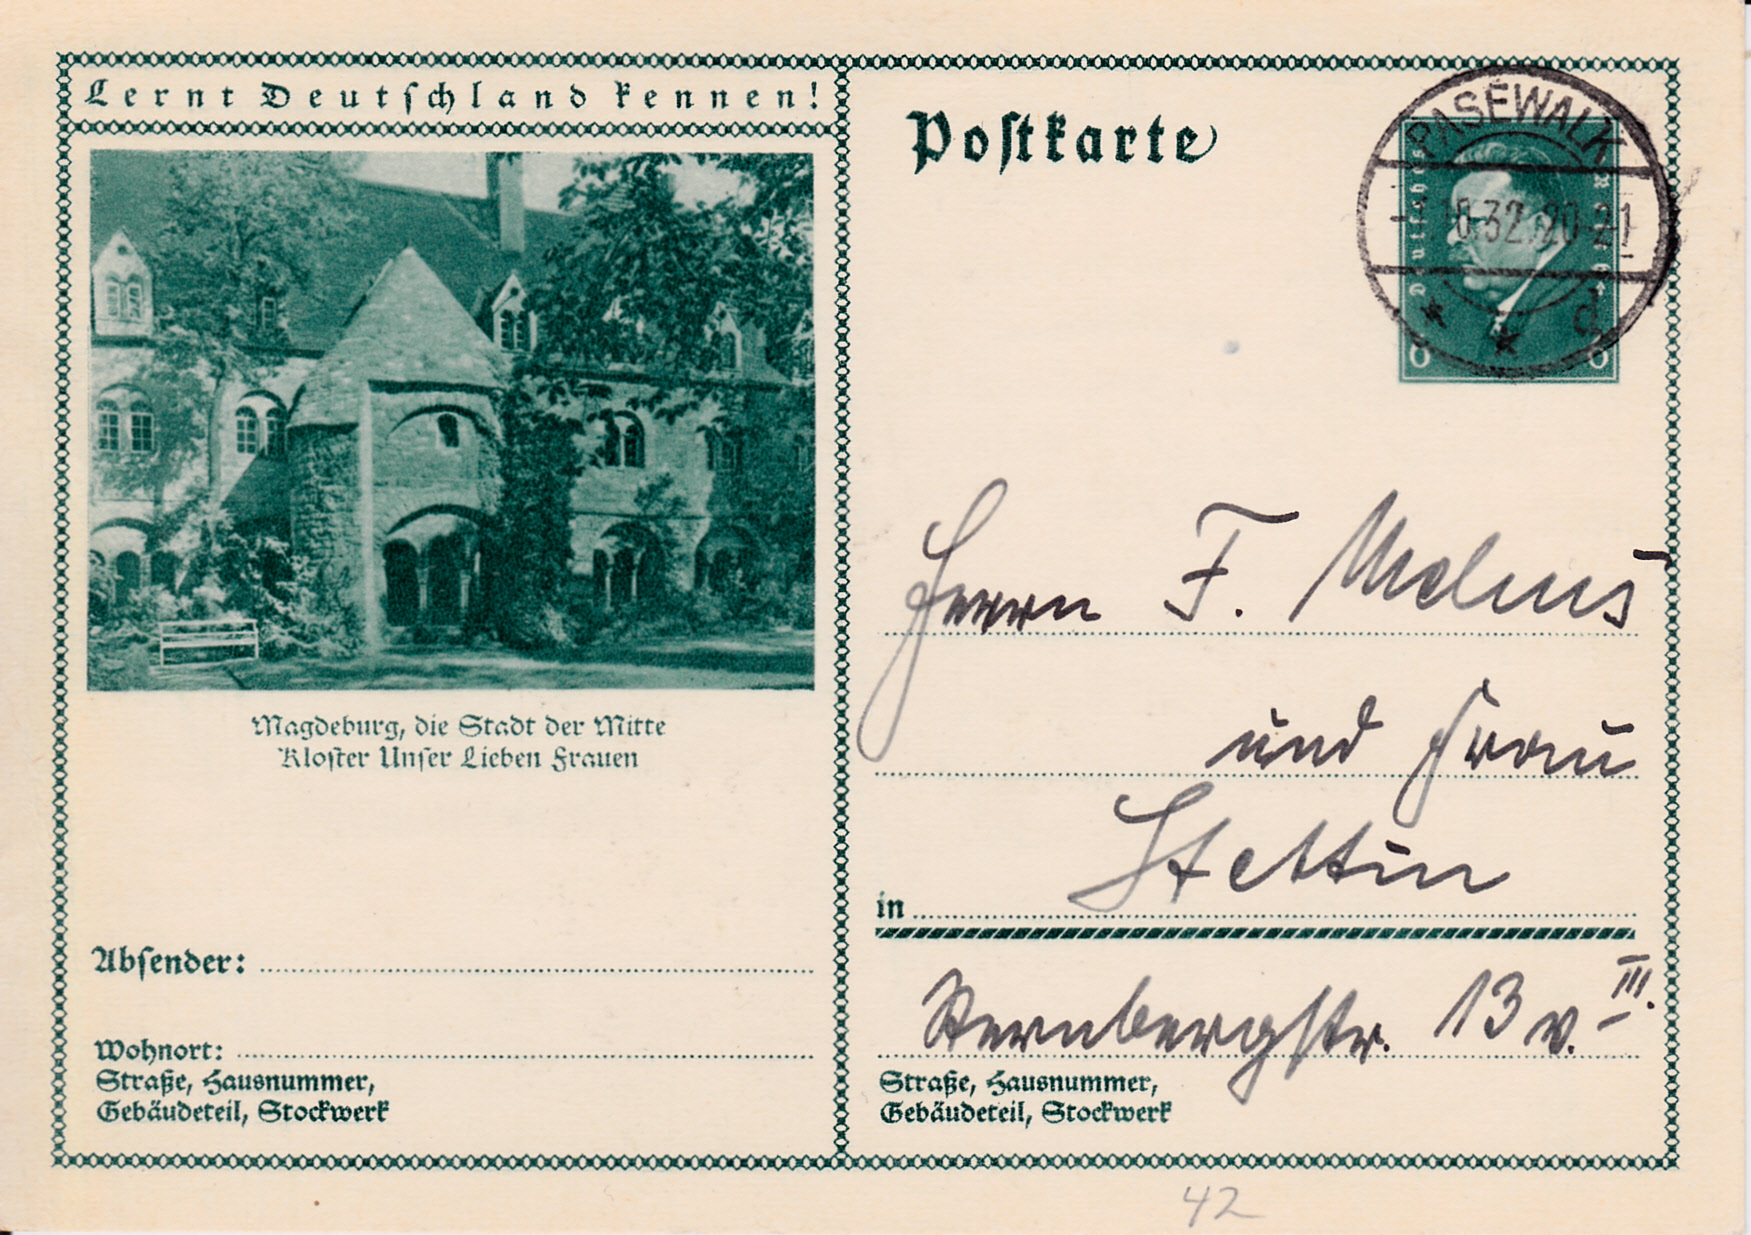 Lernt Deutschland kennen!
Postkarte
PASEWALK
.32.20-21
d
Deutsches Reich
8 8
Magdeburg, die Stadt der Mitte
Kloster Unser Lieben Frauen
Herrn F. Melms
und Frau
in Stettin
Absender:
Sternbergstr. 13 v. III.
Wohnort:
Straße, Hausnummer,
Gebäudeteil, Stockwerk
Straße, Hausnummer,
Gebäudeteil, Stockwerk
42